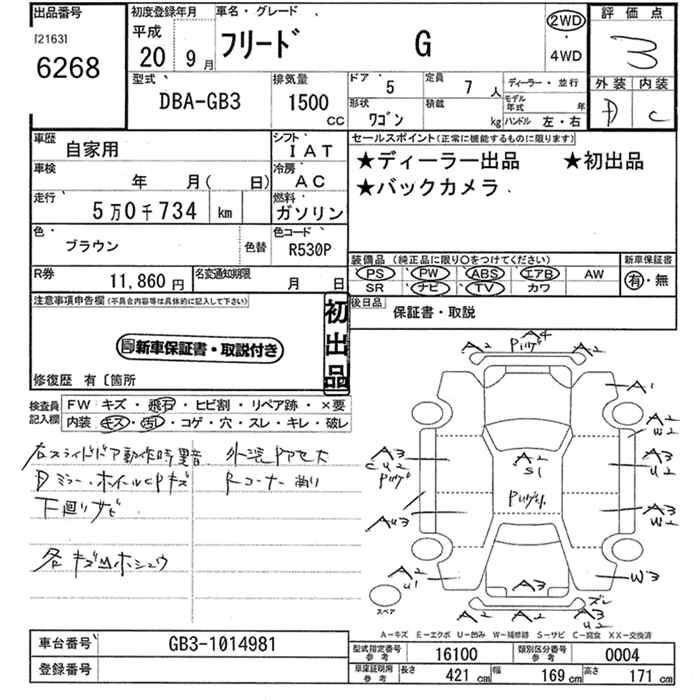 出品番号 初度登録年月 車名・グレード 評価点
[2163] 平成 フリード G 2WD 3
6268 20年 9月 ・4WD
外装 内装
型式 排気量 ドア 5 定員 7人 ディーラー・並行 D C
DBA-GB3 1500cc 形状 ワゴン 積載 kg モデル年式 年
ハンドル 左・右
車歴 自家用 シフト IAT セールスポイント(正常に機能するものに限ります)
車検 年 月( 日) 冷房 AC ★ディーラー出品 ★初出品
走行 5万0千734 km 燃料 ガソリン ★バックカメラ.
色 ブラウン 色替 色コード R530P
装備品(純正品に限り○をつけてください) 新車保証書
PS PW ABS エアB AW 有・無
R券 11,860円 名変通知期限 月 日 SR ナビ TV カワ
注意事項申告欄(不具合内容等は具体的に記入して下さい) 初出品 後日品 保証書・取説
新車保証書・取説付き
修復歴 有〔箇所
検査員記入欄 FW キズ・飛石・ヒビ割・リペア跡・×要
内装 キズ・汚レ・コゲ・穴・スレ・キレ・破レ
右スライドドア動作時異音 外装
Dミラー・ホイールCPキズ Rコーナー
下廻りサビ
各キズ凹ホシュウ
A2 A4 A2
A1
A2 W2
A3 A2 A3
S1 U2
A3 W2
AU3
A2 U1 A3 W3
スペア A2 A2 A3 U2
A－キズ E－エクボ U－凹み W－補修跡 S－サビ C－腐食 XX－交換済
車台番号 GB3-1014981 型式指定番号 参考 16100 類別区分番号 参考 0004
登録番号 車庫証明用 参考 長さ 421cm 幅 169cm 高さ 171cm